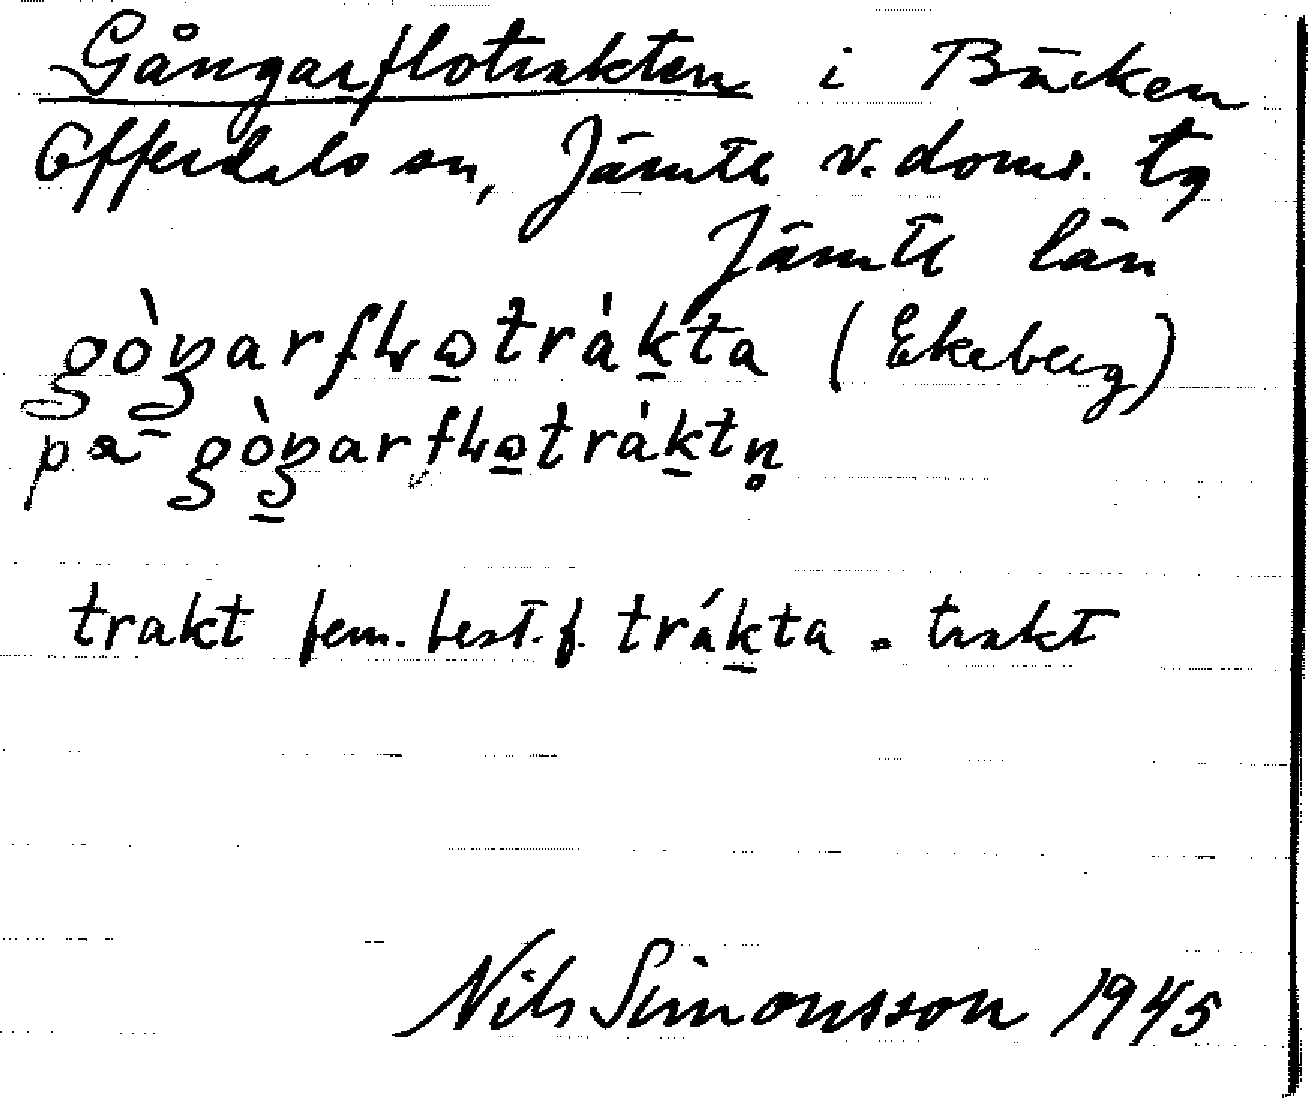 Gångarflotrakten i Bäcken
Offerdals sn, Jämtl v. doms. tg
Jämtl län
gòŋarfɬo̱trák̠ta (Ekeberg)
på gòŋarfɬo̱trák̠tn̥
trakt fem. best. f. trák̠ta . trakt
Nils Simonsson 1945